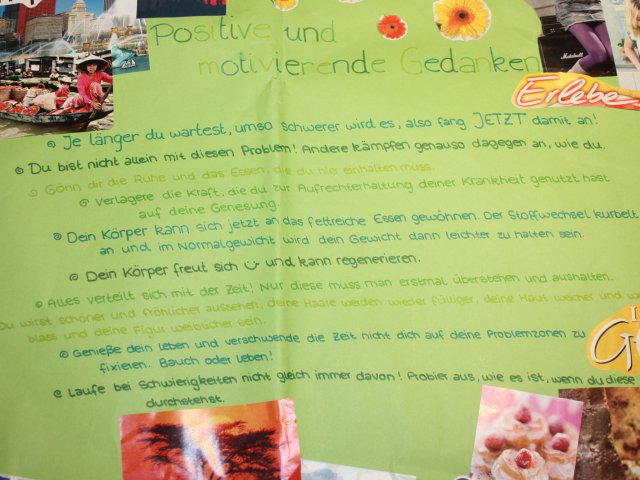 Positive und
motivierende Gedanken
Marshall
Erleben
Je länger du wartest, umso schwerer wird es, also fang JETZT damit an!
Du bist nicht allein mit diesen Problem! Andere kämpfen genauso dagegen an, wie du.
Gönn dir die Ruhe und das Essen, die du hier einhalten muss.
Verlagere die Kraft, die du zur Aufrechterhaltung deiner Krankheit genutzt hast
auf deine Genesung.
Dein Körper kann sich jetzt an das fettreiche Essen gewöhnen. Der Stoffwechsel kurbelt
an und im Normalgewicht wird dein Gewicht dann leichter zu halten sein.
Dein Körper freut sich und kann regenerieren.
Alles verteilt sich mit der Zeit! Nur diese muss man erstmal überstehen und aushalten.
Du wirst schöner und fröhlicher aussehen, deine Haare werden wieder fülliger, deine Haut weicher und
blass und deine Figur weiblicher sein.
Genieße dein Leben und verschwende die Zeit nicht dich auf deine Problemzonen zu
fixieren. Bauch oder Leben!
Laufe bei Schwierigkeiten nicht gleich immer davon! Probier aus, wie es ist, wenn du diese
durchstehst.